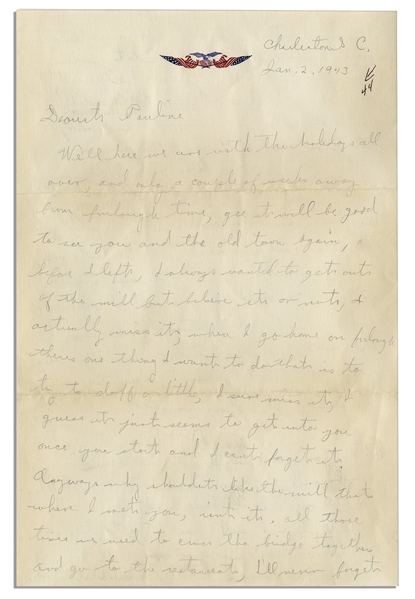 Charleston S C.
Jan. 2, 1943
44
Dearest Pauline
Well here we are with the holidays all
over, and only a couple of weeks away
from furlough time, gee it will be good
to see you and the old town again,
before I left, I always wanted to get out
of the mill but believe it or not, I
actually miss it, when I go home on furlough
theres one thing I want to do thats is to
try to doff a little, I sure miss it, I
guess it just seems to get into you
once you start and I cant forget it.
Anyways why shouldnt I like the mill that
where I met you, isnt it, all those
times we used to cross the bridge together
and go to the restaurant, I'll never forget